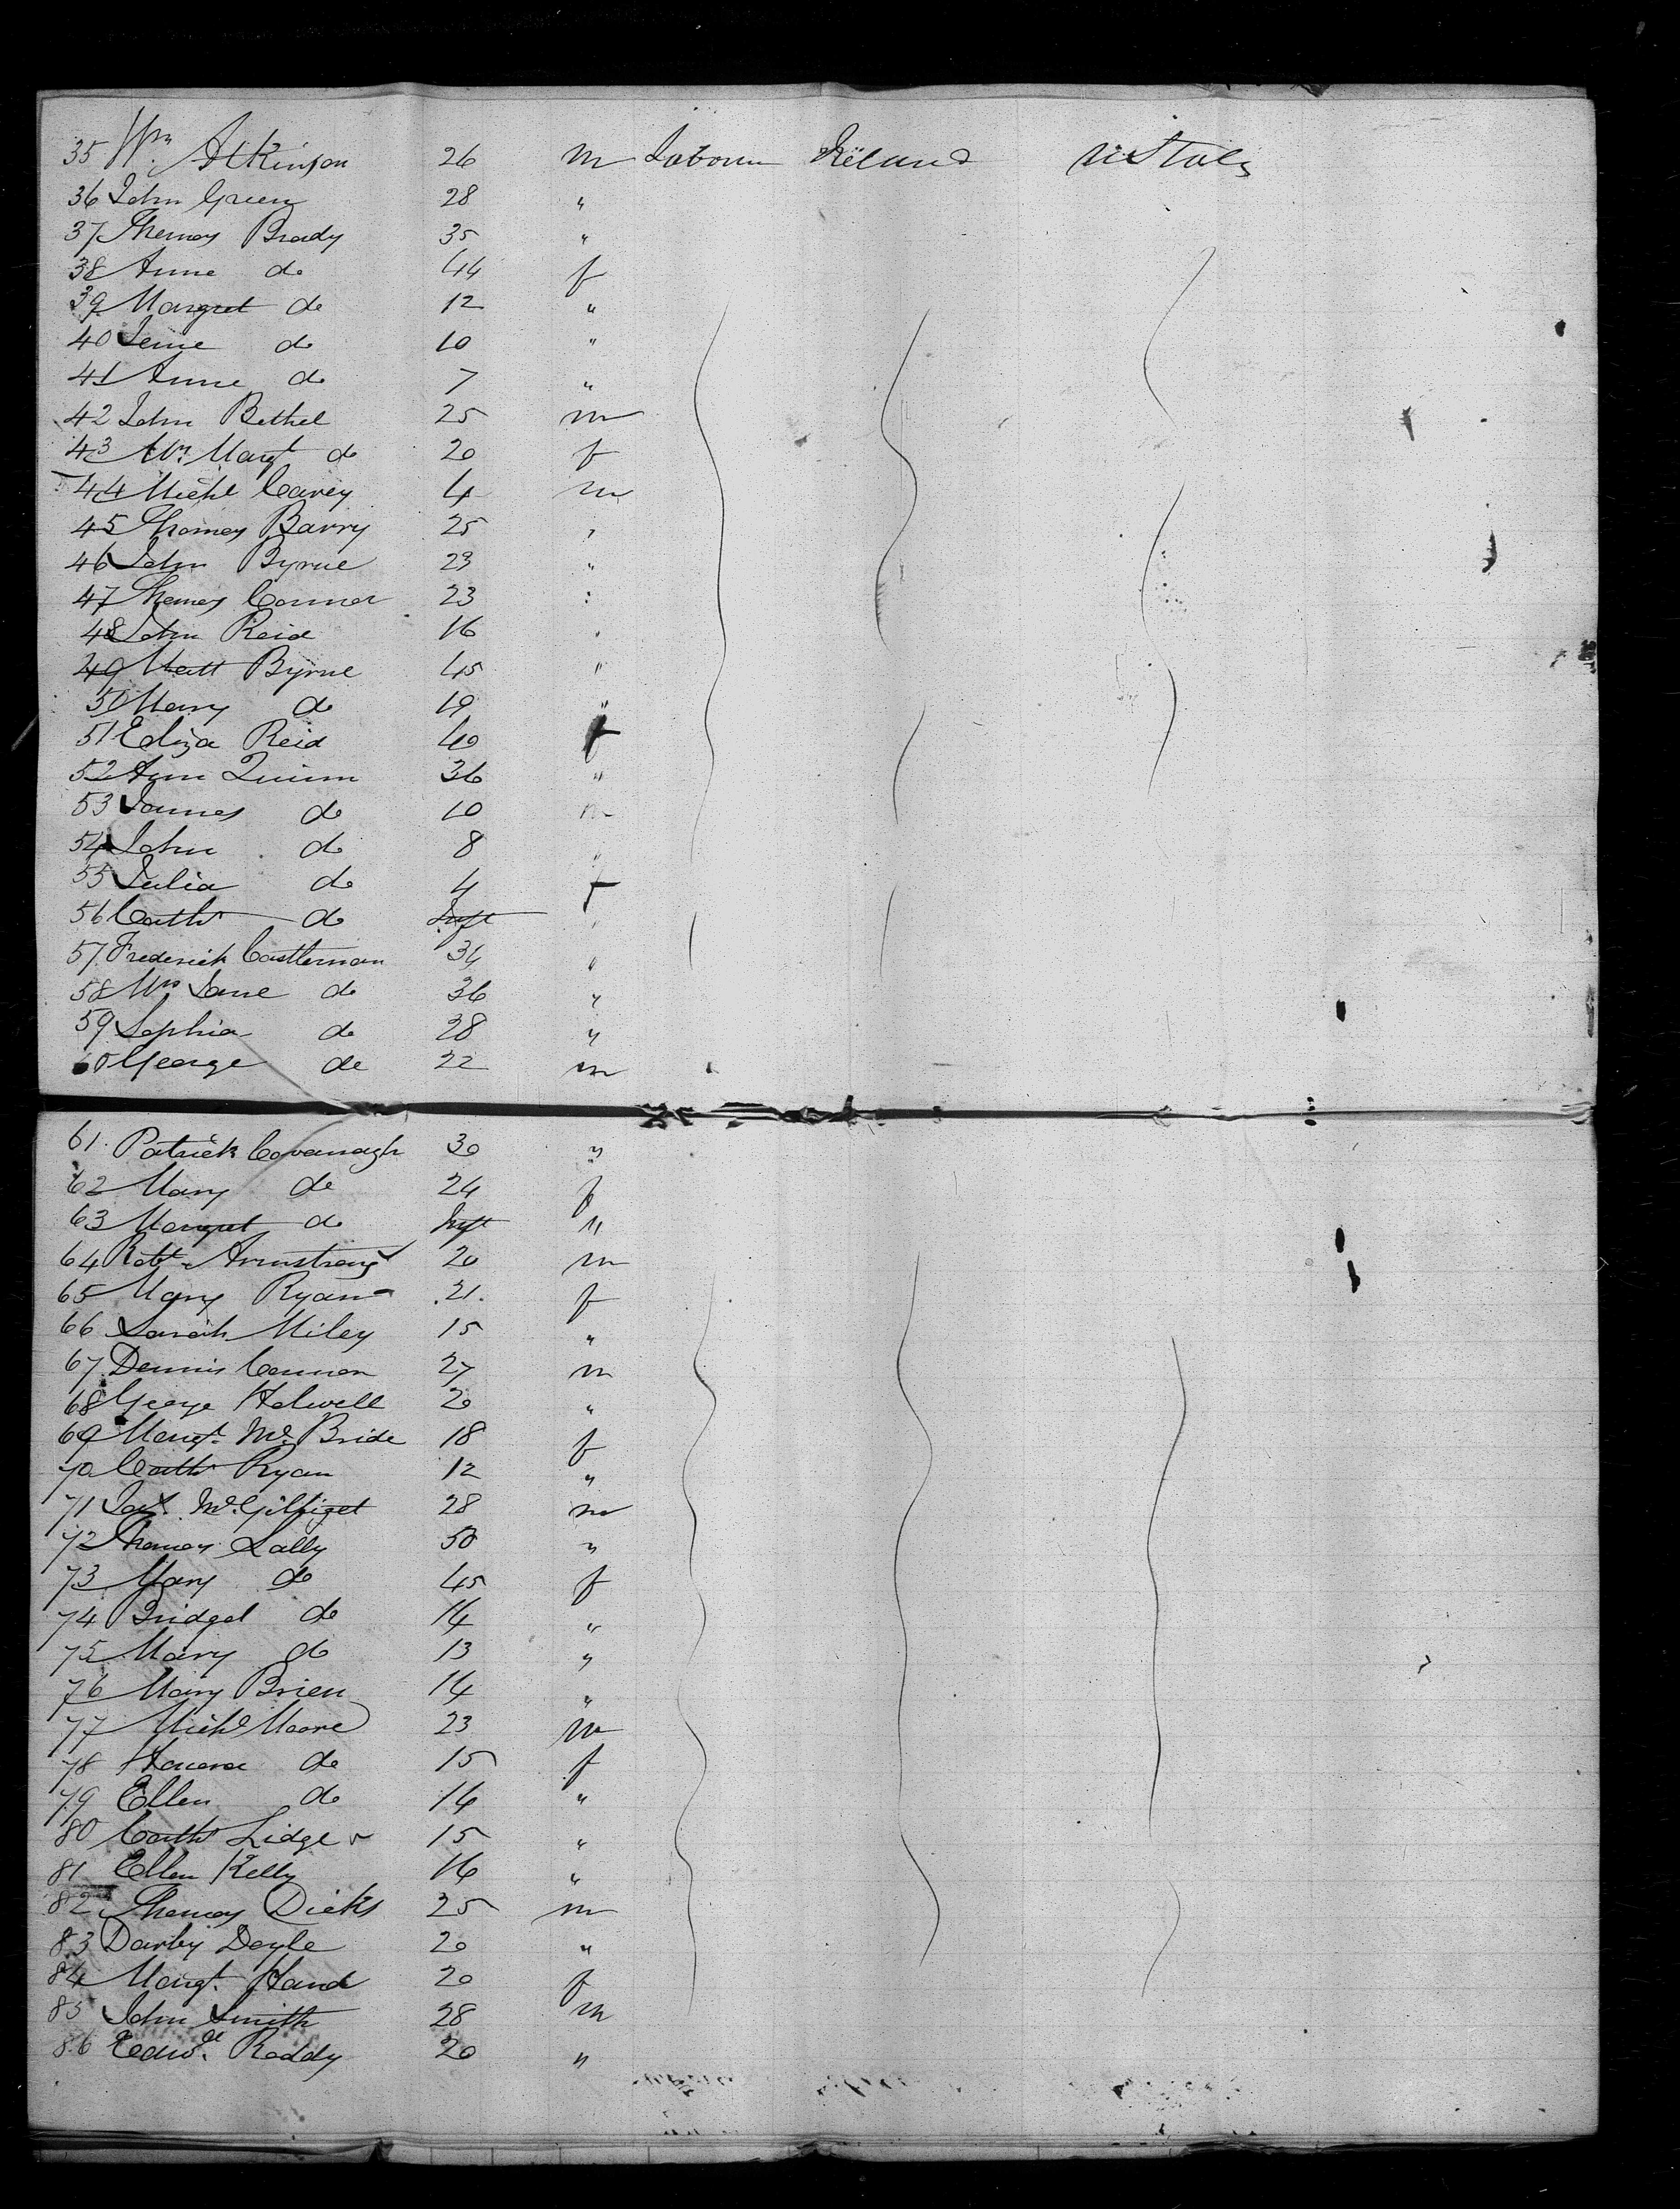 35 Wm. Atkinson 26 m Labourer Ireland U States
36 John Green 28 "
37 Thomas Brady 35 "
38 Anne do 44 f
39 Margret do 12 "
40 Jenie do 10 "
41 Anne do 7 "
42 John Bethel 25 m
43 Mrs Margt do 20 f
44 Michl Carey 4 m
45 Thomas Barry 25 "
46 John Byrne 23 "
47 Thomas Connor 23 "
48 John Reid 16 "
49 Matt Byrne 45 "
50 Mary do 19 "
51 Eliza Reid 40 f
52 Ann Quinn 36 "
53 James do 10 m
54 John do 8 "
55 Julia do 4 f
56 Cathe do Inft "
57 Frederick Castleman 34 "
58 Mrs Jane do 36 "
59 Sophia do 28 "
60 George do 22 m
61. Patrick Cavanagh 30 "
62 Mary do 24 f
63 Margret do Inft "
64 Robt Armstrong 20 m
65 Mary Ryan 21. f
66 Sarah Miley 15 "
67 Dennis Connor 27 m
68 George Holwell 20 "
69 Margt. Mc Bride 18 f
70 Cathe Ryan 12 "
71 28 m
72 Thomas Lally 50 "
73 Mary do 45 f
74 Bridget do 14 "
75 Mary do 13 "
76 Mary Brien 14 "
77 Michl Moore 23 m
78 Honora do 15 f
79 Ellen do 14 "
80 Cathe 15 "
81 Ellen Kelly 16 "
82 Thomas Dicks 25 m
83 Darby Doyle 20 "
84 Margt. Hand 20 f
85 John Smith 28 m
86 Edwd. Roddy 20 "